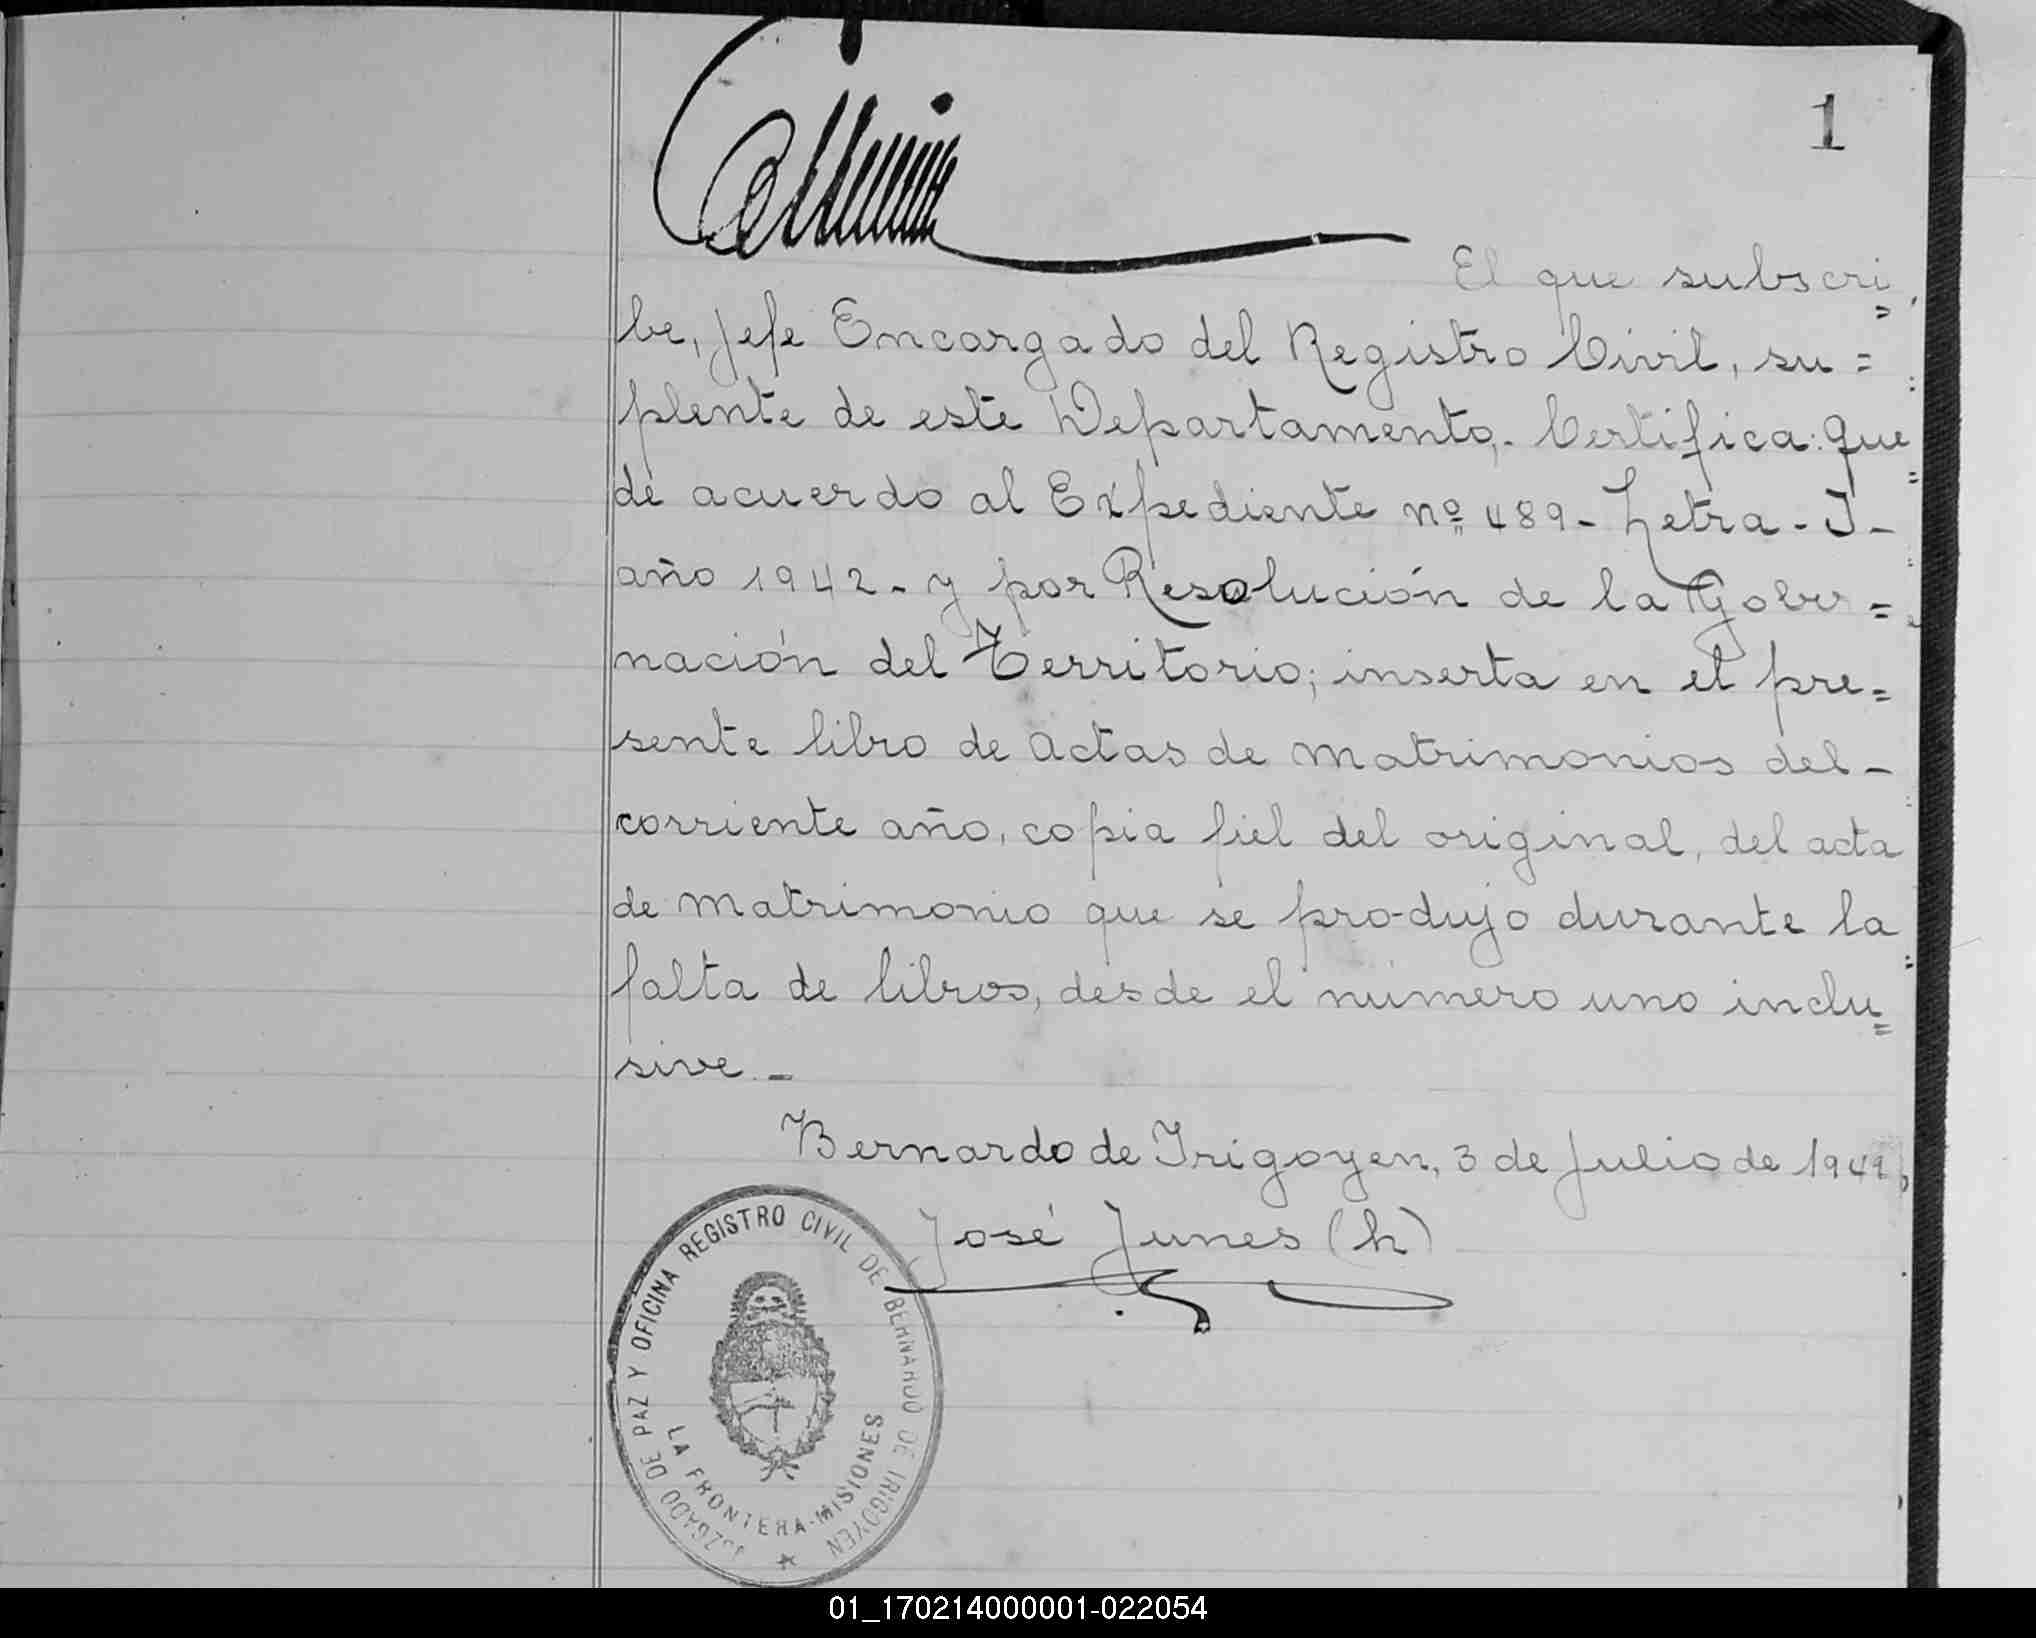 1
El que subscri=
be, Jefe Encargado del Registro Civil, su=
plente de este Departamento,. Certifica: que
de acuerdo al Expediente nº 489 - Letra - J -
año 1942 - y por Resolución de la Gober=
nación del Territorio; inserta en el pre=
sente libro de Actas de Matrimonios del -
corriente año, copia fiel del original, del acta
de matrimonio que se pro-dujo durante la
falta de libros, desde el número uno inclu=
sive. -
Bernardo de Irigoyen, 3 de Julio de 1942
José Junes (h)
JUZGADO DE PAZ Y OFICINA REGISTRO CIVIL DE BERNARDO DE IRIGOYEN
LA FRONTERA - MISIONES
01_170214000001-022054